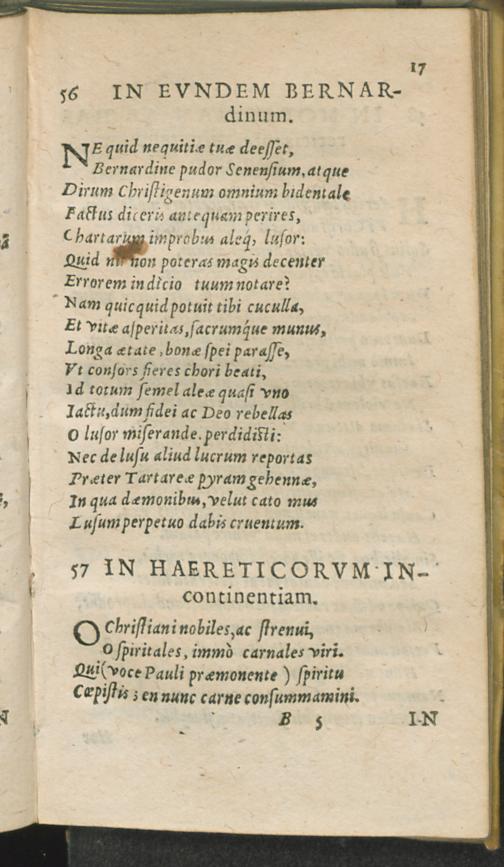 17
56 IN EVNDEM BERNAR-
dinum.
NE quid nequitiæ tuæ deesset,
Bernardine pudor Senensium, atque
Dirum Christigenum omnium bidentale
Factus diceris antequam perires,
Chartarum improbus aleq́, lusor:
Quid non poteras magis decenter
Errorem indicio tuum notare?
Nam quicquid potuit tibi cuculla,
Et vitæ asperitas, sacrumq́ue munus,
Longa ætate, bonæ spei parasse,
Vt consors fieres chori beati,
Id totum semel aleæ quasi vno
Iactu, dum fidei ac Deo rebellas
O lusor miserande. perdidisti:
Nec de lusu aliud lucrum reportas
Præter Tartareæ pyram gehennæ,
In qua dæmonibus, velut cato mus
Lusum perpetuo dabis cruentum.
57 IN HAERETICORVM IN-
continentiam.
O Christiani nobiles, ac strenui,
O spiritales, immò carnales viri.
Qui (voce Pauli præmonente) spiritu
Cœpistis; en nunc carne consummamini.
B 5 IN